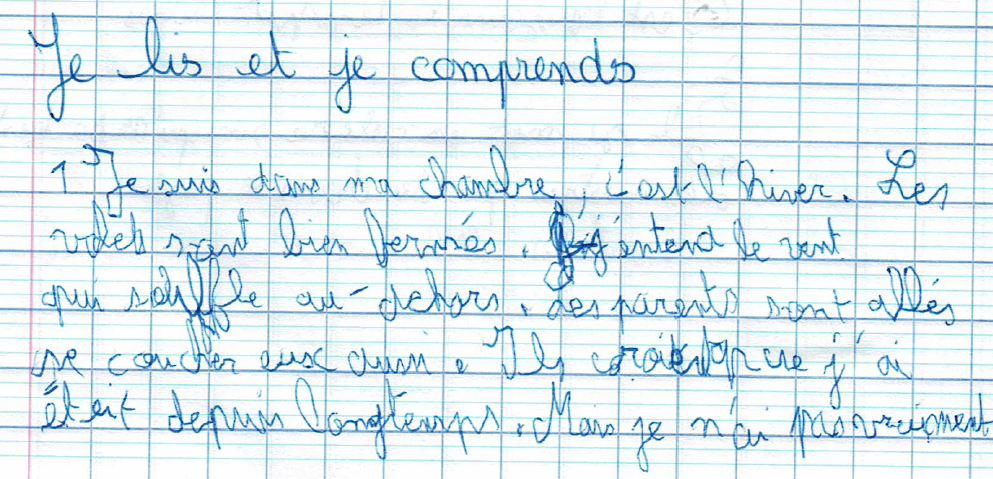 Je lis et je comprends
1 Je suis dans ma chambre, c'est l'hiver. Les
volets sont bien fermés. j'entend le vent
qui souffle au-dehors. Les parents sont allés
se coucher eux aussi. Ils croient que j'ai
éteit depuis longtemps. Mais je n'ai pas vraiment